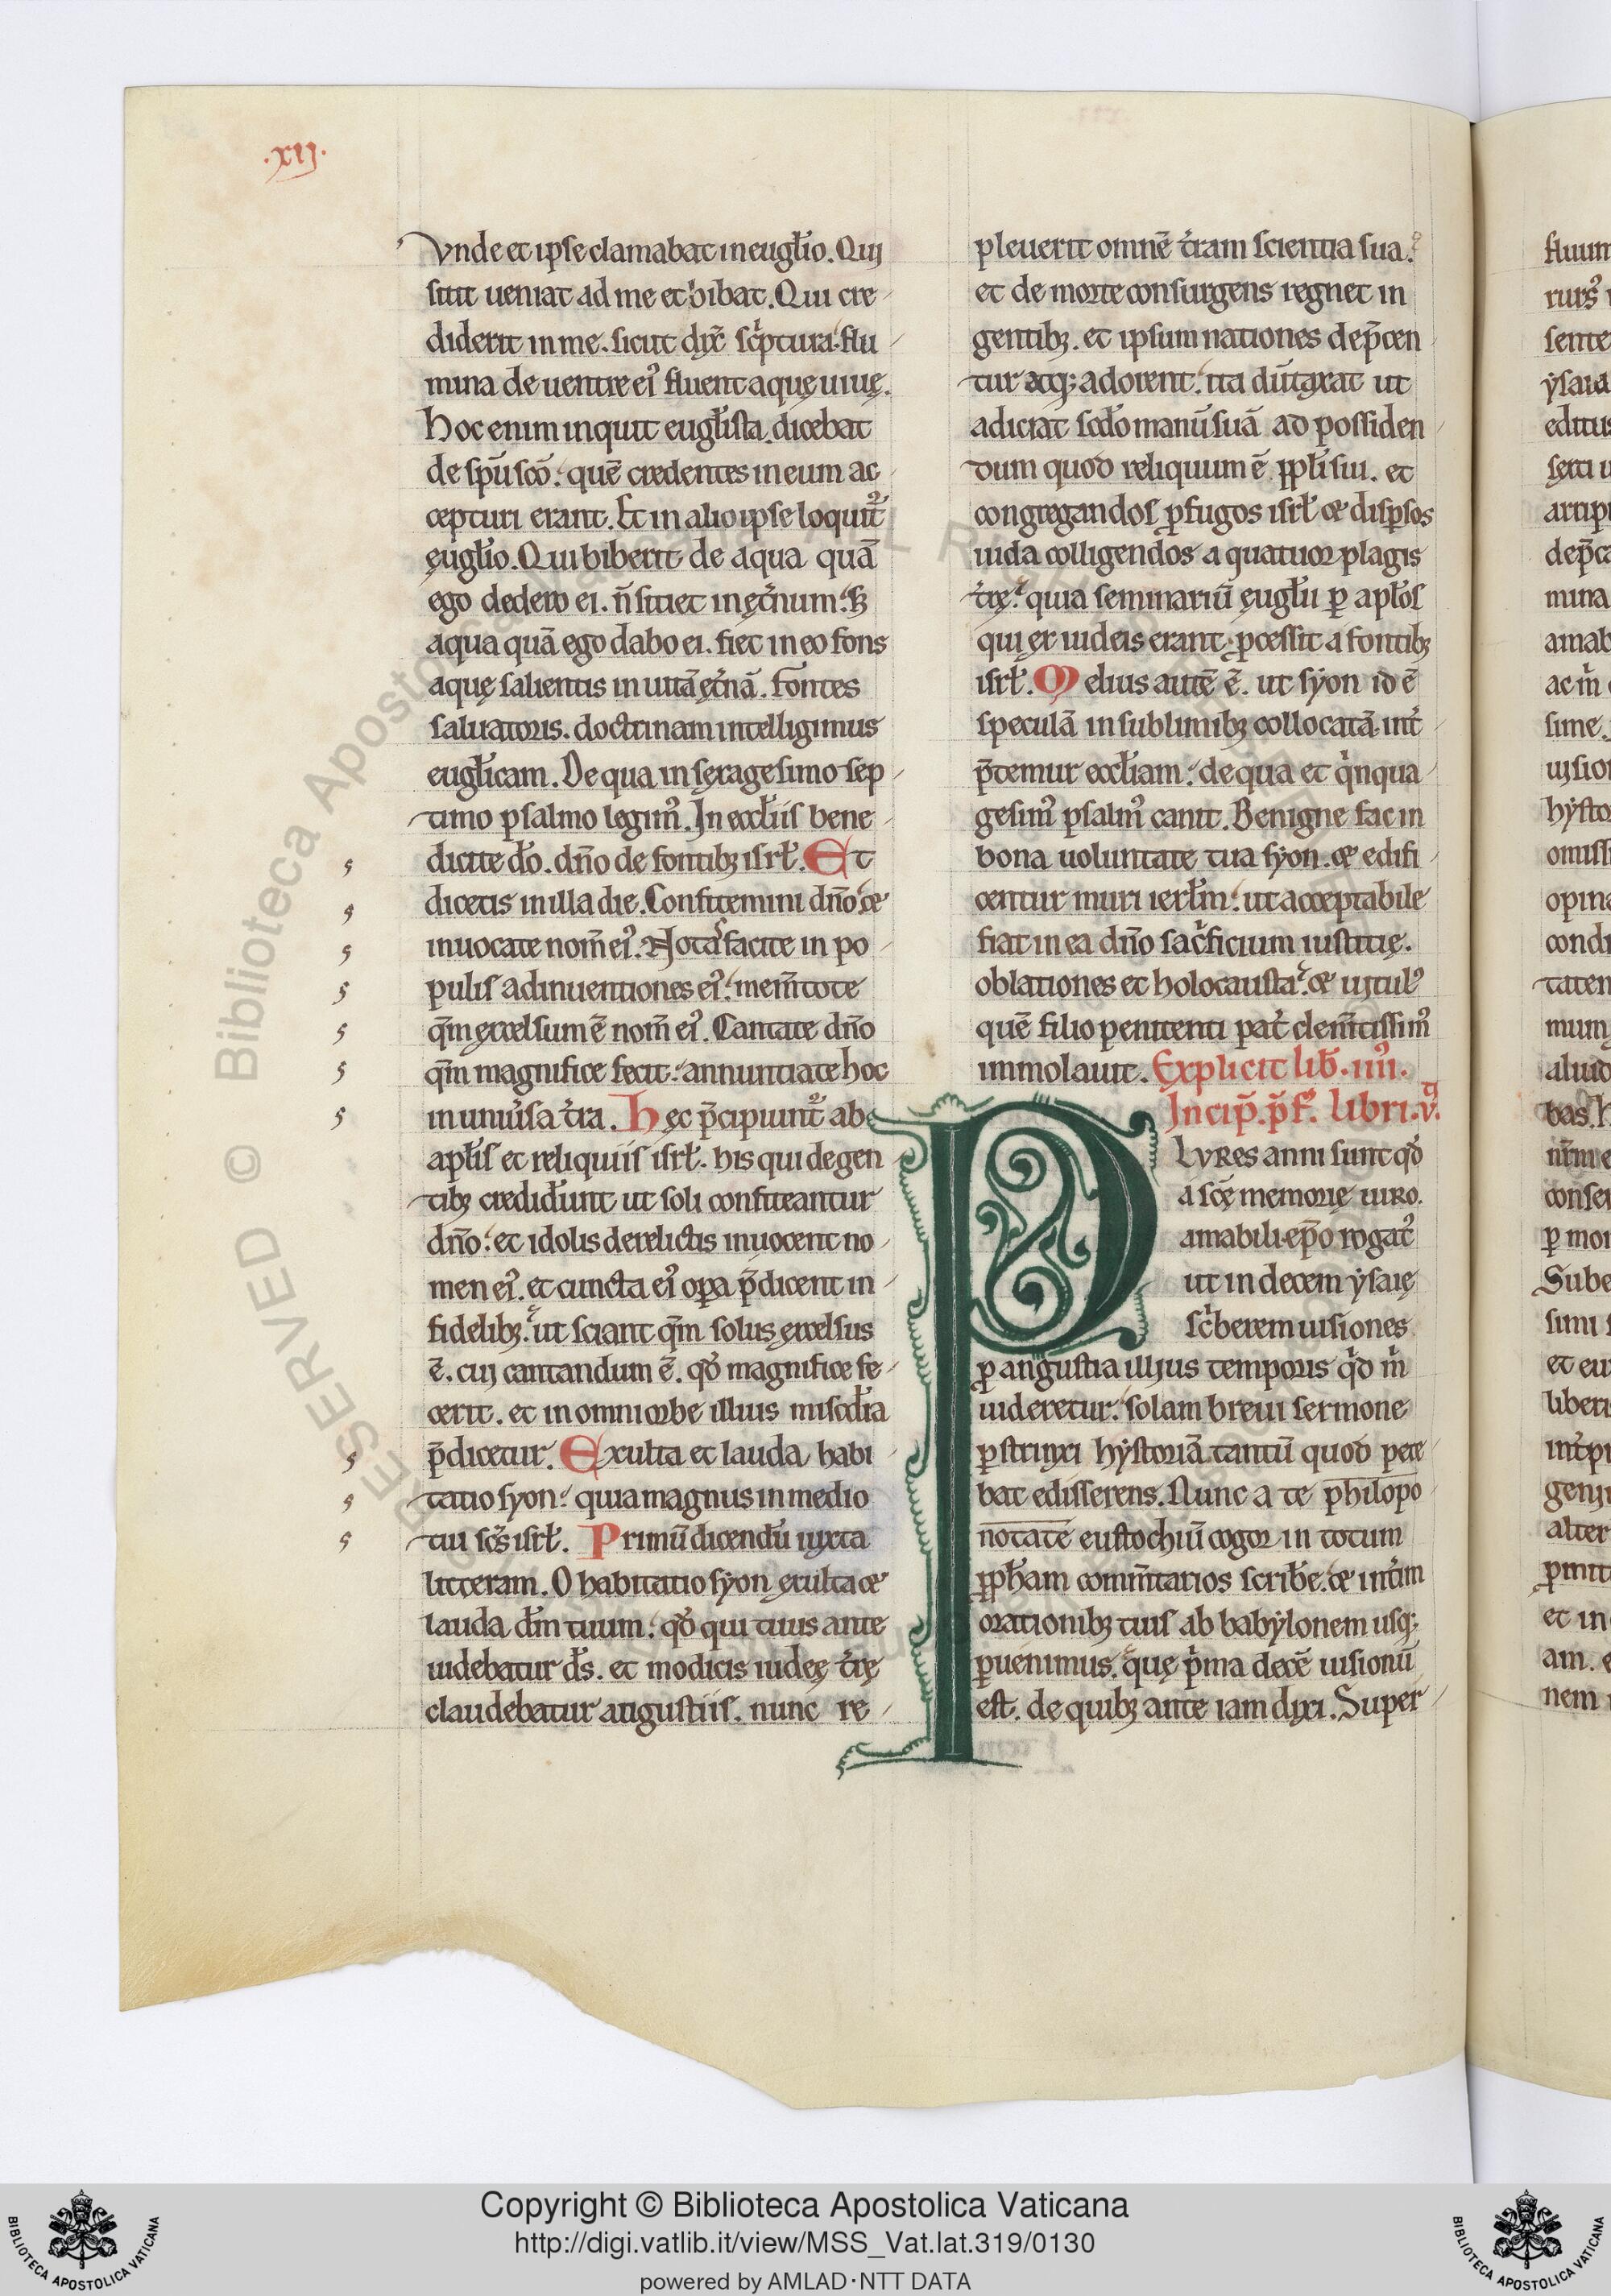 .xij.
Vnde et ipse clamabat in eugƚio. Qui
sitit ueniat ad me et bibat. Qui cre
diderit in me. sicut dix̄ sc̍ptura. flu
mina de uentre ei᾿ fluent aquę uiuę.
Hoc enim inquit eugƚista. dicebat
de sp̄u sc̄o. quē credentes in eum ac
cepturi erant. Et in alio ipse loquit᾿
ęugƚio. Qui biberit de aqua quā
ego dedero ei. n̄ sitiet in ęt̾num. sꝫ
aqua quā ego dabo ei. fiet in eo fons
aquę salientis in uitā ęt̾nā. Fontes
saluatoris. doctrinam intelligimus
eugƚicam. De qua in sexagesimo sep
timo psalmo legim᾿. In eccƚiis bene
dicite dƚo. dn̄o de fontibꝫ isrƚ. Et
dicetis in illa die. Confitemini dn̄o. et
inuocate nom̄ ei᾿. Notas facite in po
pulis adinuentiones ei᾿. mem̄tote
qm̄ excelsum ē nom̄ ei᾿. Cantate dn̄o
qm̄ magnifice fecit. annuntiate hoc
in uniu̾sa t̾ra. Hęc p̄cipiunt᾿ ab
apƚis et reliquiis isrƚ. his qui de gen
tibꝫ credider̄unt ut soli confiteantur
dn̄o. et idolis derelictis inuocent no
men ei᾿. et cuncta ei᾿ opa p̄dicent in
fidelibꝫ. ut sciant qm̄ solus excelsus
ē. cui cantandum ē. qƚo magnifice fe
cerit. et in omni orbe illius misc̄dia
p̄dicetur. Exulta et lauda habi
tatio syon. quia magnus in medio
tui sc̄s isrƚ. Primū dicendū iuxta
litteram. O habitatio syon exulta et
lauda dm̄ tuum. qƚo qui tuus ante
uidebatur ds̄. et modicis iudeę t̾rę
claudebatur angustiis. nunc re
pleuerit omnē t̾ram scientia sua.
et de morte consurgens regnet in
gentibꝫ. et ipsum nationes dep̄cen
tur atqꝫ adorent. ita dūtaxat ut
adiciat sc̄do manū suā ad possiden
dum quod reliquum ē ppƚi sui. et
congregandos ꝓfugos isrƚ et disꝑsos
iuda colligendos a quatuor plagis
t̾rę. quia seminariū ęugƚii ꝑ apƚos
qui ex iudeis erant. ꝓcessit a fontibꝫ
isrƚ. Melius autē ē. ut syon id ē
speculā in sublimibꝫ collocatā. int̾
p̄temur eccƚiam. de qua et q̍nqua
gesim᾿ psalm᾿ canit. Benigne fac in
bona uoluntate tua syon. et edifi
centur muri ierƚm. ut acceptabile
fiat in ea dn̄o sac̍ficium iustitię.
oblationes et holocausta. et uitul᾿
quē filio penitenti pat̾ clem̄tissim᾿
immolauit. Explicit lib̄. iiii.
Incip̄. p̄f. libri. v.
PLVRes anni sunt qƚd
a sc̄ę memorię uiro.
amabili ep̄o rogat᾿
ut in decem ysaię
sc̍berem uisiones
ꝑ angustia illius temporis q̍d m̍
uideretur. solam breui sermone
ꝑstrinxi hystoriā tantū quod pete
bat edisserens. Nunc a te philopo
notate eustochiū cogor in totum
ꝓpƚham comm̄tarios scribe̾. et int̾im
orationibꝫ tuis ab babylonem usqꝫ
ꝑuenimus. quę p̍ma decē uisionū
est. de quibꝫ ante iam dixi. Super
Copyright © Biblioteca Apostolica Vaticana
http://digi.vatlib.it/view/MSS_Vat.lat.319/0130
powered by AMLAD·NTT DATA
BIBLIOTECA APOSTOLICA VATICANA
BIBLIOTECA APOSTOLICA VATICANA